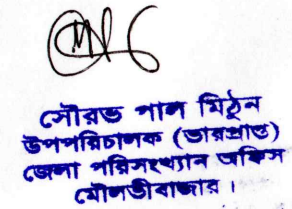 সৌরভ পাল মিঠুন
উপপরিচালক (ভারপ্রাপ্ত)
জেলা পরিসংখ্যান অফিস
মৌলভীবাজার।